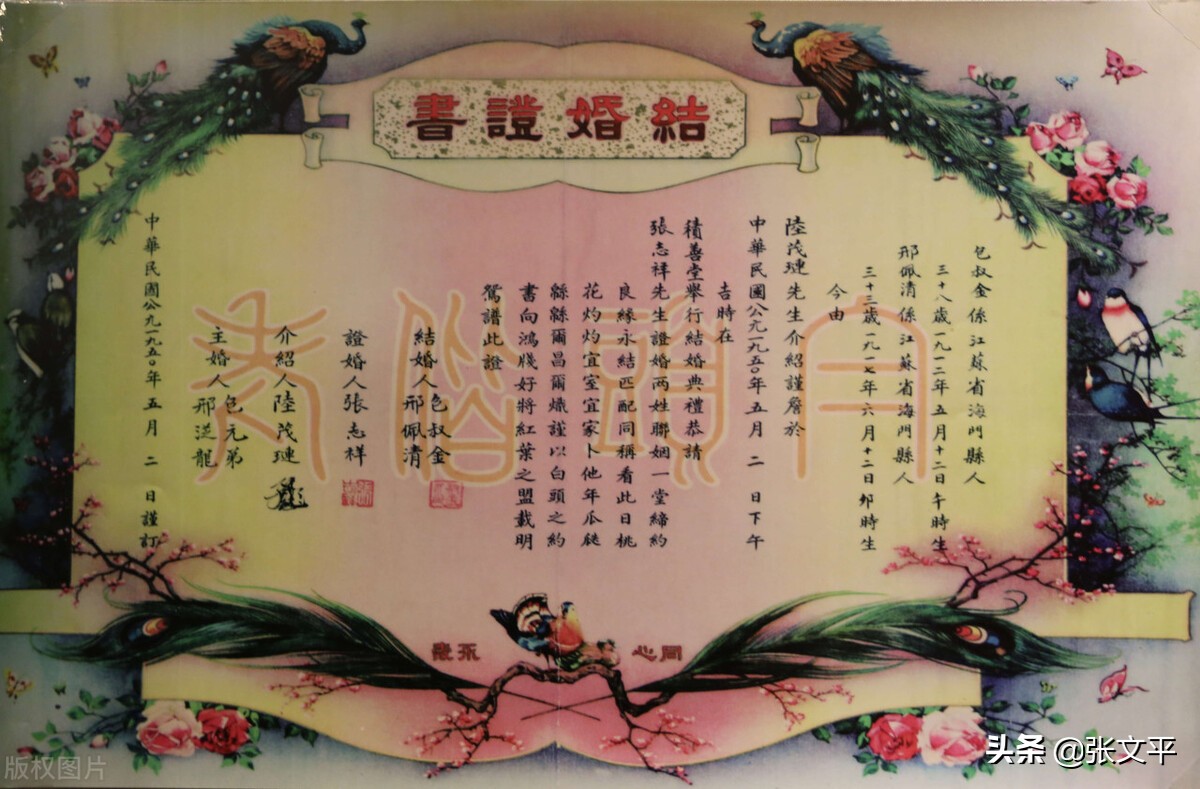 結婚證書
白頭偕老
包叔金係江蘇省海門縣人
三十八歲一九一二年五月十二日午時生
邢佩清係江蘇省海門縣人
三十三歲一九一七年六月十二日卯時生
今由
陸茂璉先生介紹謹詹於
中華民國公九一九五〇年五月二日下午
吉時在
積善堂舉行結婚典禮恭請
張志祥先生證婚兩姓聯姻一堂締約
良緣永結匹配同稱看此日桃
花灼灼宜室宜家卜他年瓜瓞
緜緜爾昌爾熾謹以白頭之約
書向鴻牋好將紅葉之盟載明
鴛譜此證
結婚人包叔金
邢佩清
證婚人張志祥
介紹人陸茂璉
主婚人包元弟
邢龍
中華民國公九一九五〇年五月二日謹訂
同心
永愛
版权图片
头条 @张文平